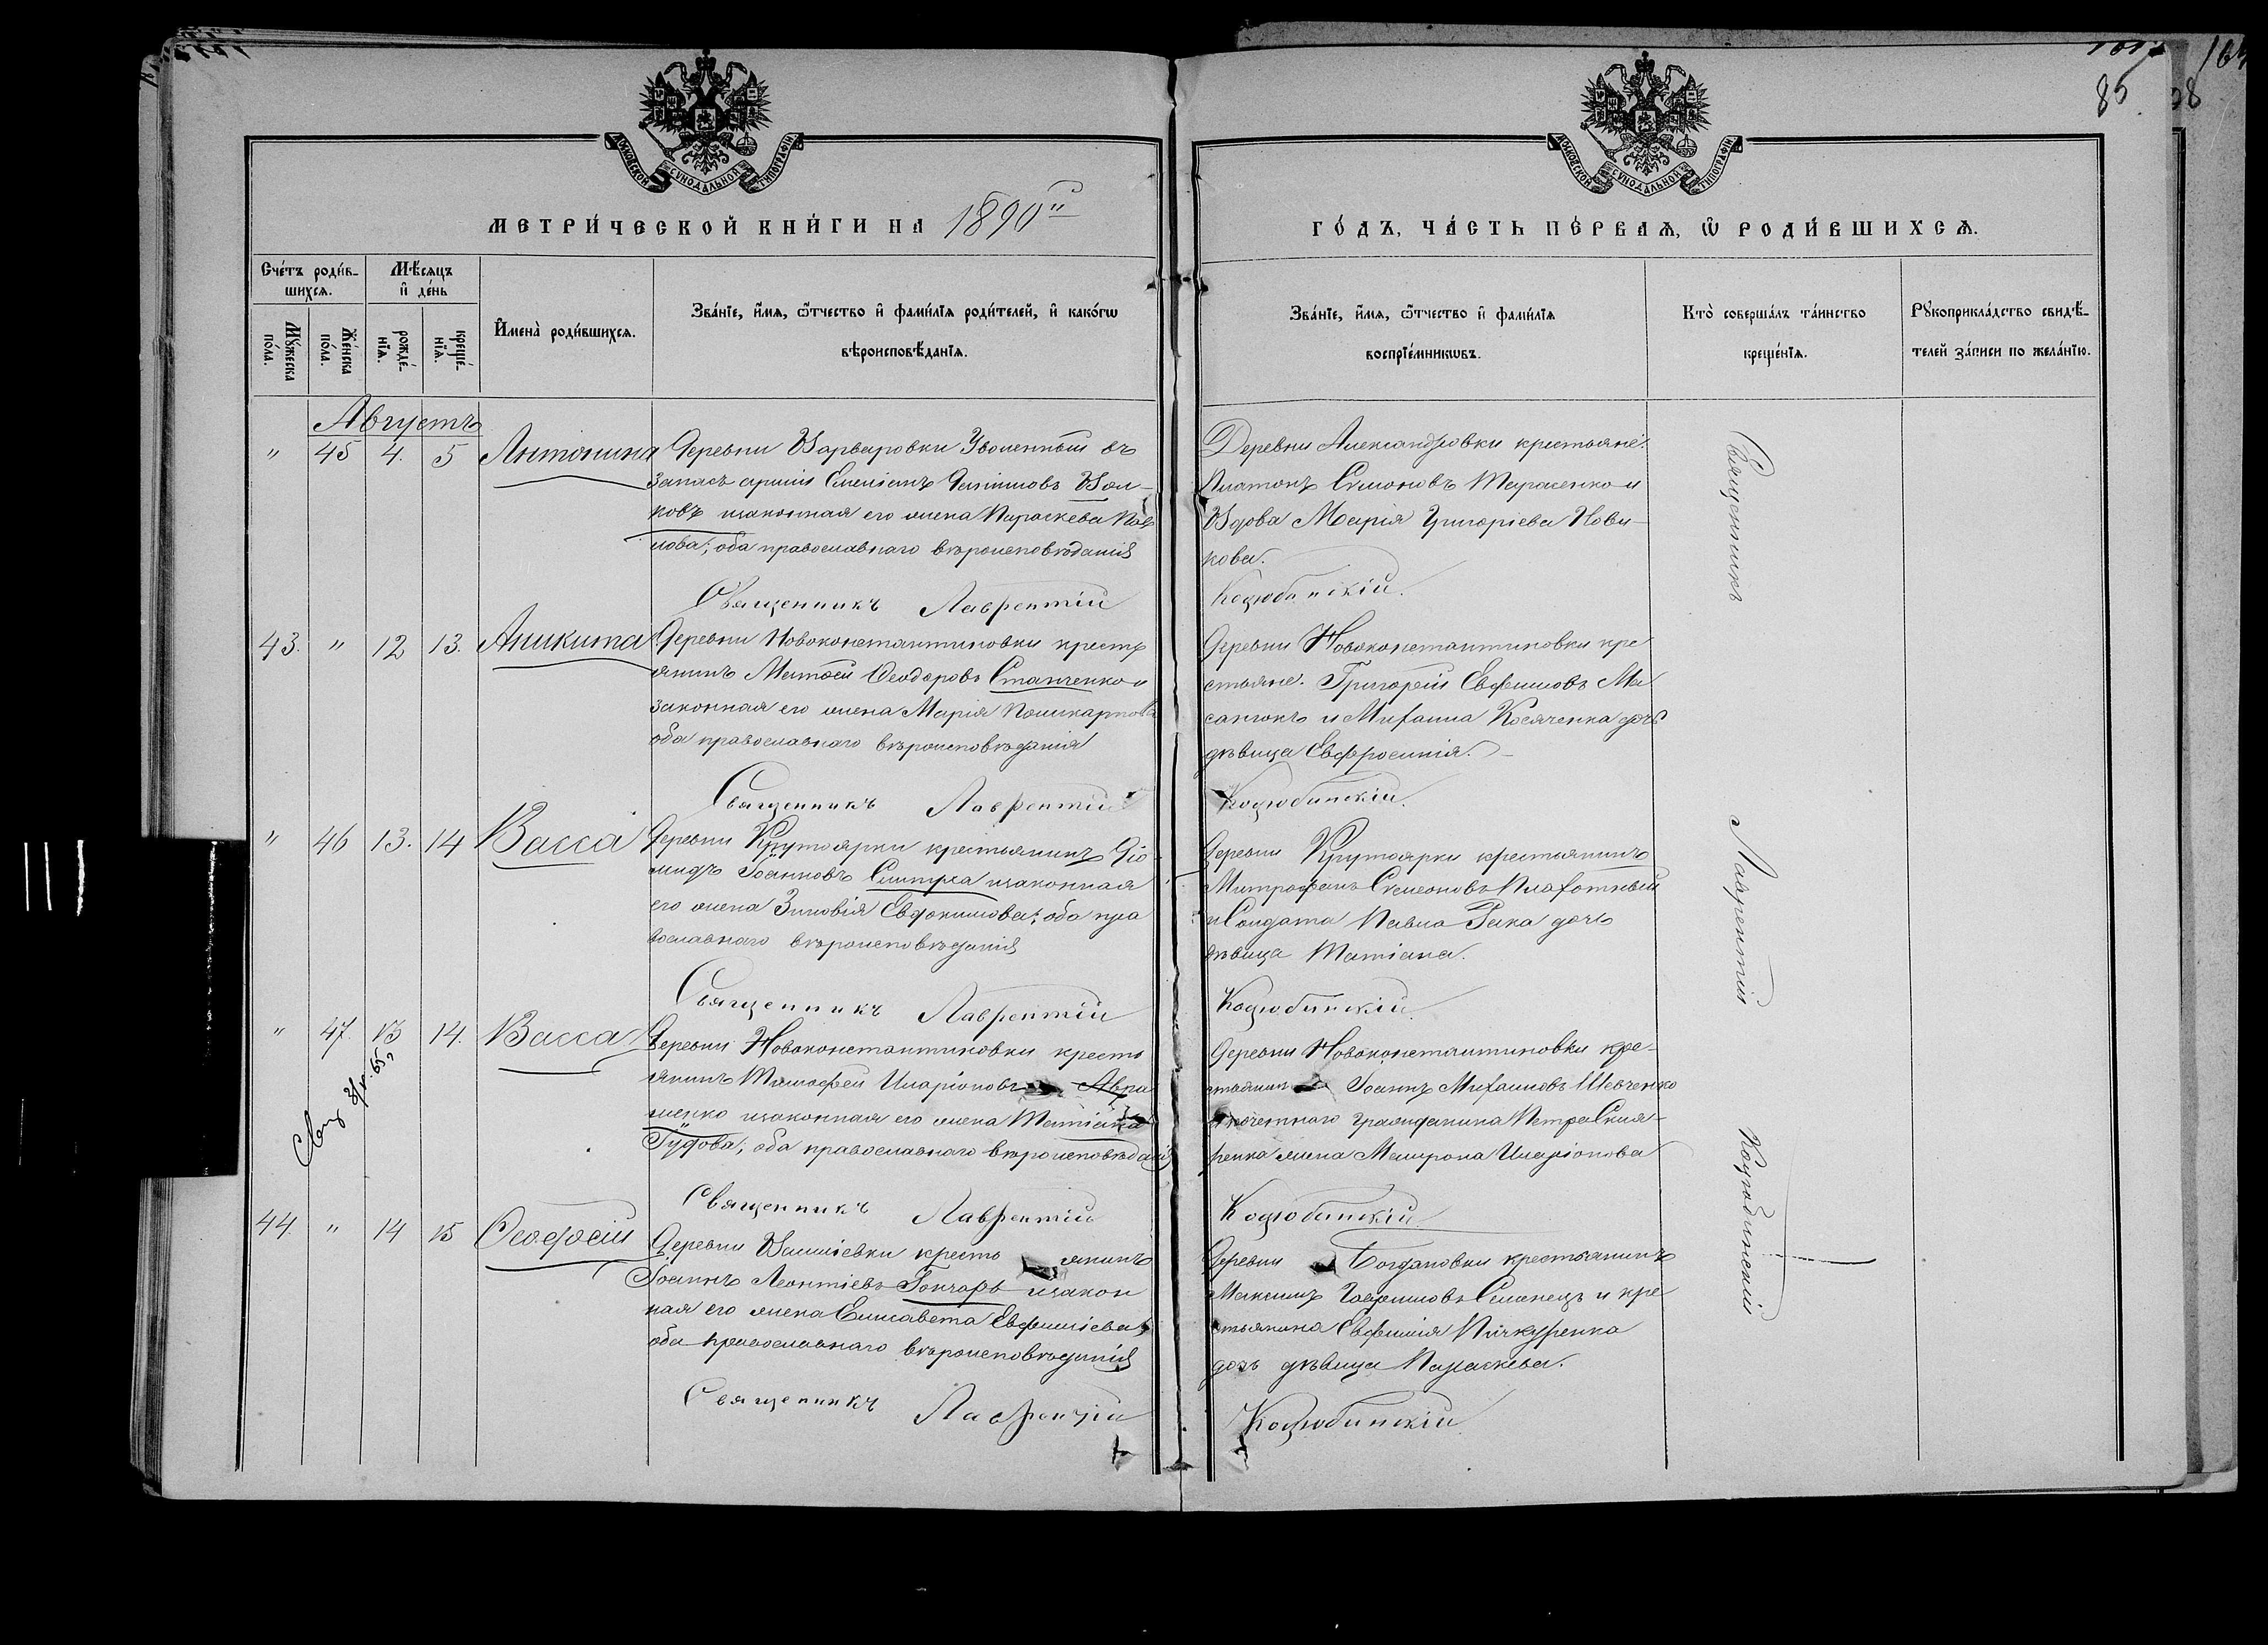 85
МОСКОВСКОЙ СѴНОДАЛЬНОЙ ТИПОГРАФІИ
МОСКОВСКОЙ СѴНОДАЛЬНОЙ ТИПОГРАФІИ
МЕТРИ́ЧЕСКОЙ КНИ́ГИ НА 1890й
ГО́ДЪ, ЧА́СТЬ ПЕ́РВАѦ, Ѡ҆ РОДИ́ВШИХСѦ.
Сче́тъ роди́в-
шихсѧ.
Мꙋ́жеска по́ла.
Же́нска по́ла.
Мѣ́сѧцъ
и҆ де́нь
рожде́-нїѧ.
креще́-нїѧ.
И҆мена̀ роди́вшихсѧ.
Зва́нїе, и҆́мѧ, ѻ҆́тчество и҆ фами́лїѧ роди́телей, и҆ како́гѡ
вѣроисповѣ́данїѧ.
Зва́нїе, и҆́мѧ, ѻ҆́тчество и҆ фами́лїѧ
воспрїе́мникѡвъ.
Кто̀ соверша́лъ та́инство
креще́нїѧ.
Рꙋкоприкла́дство свидѣ́-
телей за́писи по жела́нїю.
Августъ
" 45 4. 5 Антонина
Деревни Варваровки Уволенный въ
запасъ арміи Вол-
ковъ изаконная его жена Параскева Пав
лова; оба православнаго вѣроисповѣданія
Священникъ Лаврентій
Деревни Александровки крестьяне:
Платонъ Симоновъ Тарасенко и
Вдова Марія Григоріева Нови-
кова.
Коцюбинскій.
43. " 12 13. Аникита
Деревни Новоконстантиновки кресть
янинъ Матѳей Ѳеодоровъ Станченко и
законная его жена Марія Поликарпова
оба православнаго вѣроисповѣданія
Священникъ Лаврентій
Деревни Новоконстантиновки кре
стьяне. Григорій Евфимовъ Ма
санюкъ и Михаила Косяченка дочь
дѣвица Евфросинія.
Коцюбинскій.
" 46 13. 14 Васса
Деревни Крутоярки крестьянинъ Діо-
мидъ Іоанновъ Слипуха изаконная
его жена Зиновія Евдокимова; оба пра
вославнаго вѣроисповѣданія
Священникъ Лаврентій
Деревни Крутоярки крестьянинъ
Митрофанъ Симеоновъ Плахотный
и Солдата Павла Рака дочь
дѣвица Татіана.
Коцюбинскій.
" 47. 13 14. Васса
Деревни Новоконстантиновки кресть
янинъ Тимофей Иларіоновъ Авра
менко изаконная его жена Татіана
оба православнаго вѣроисповѣданія
Священникъ Лаврентій
Деревни Новоконстантиновки кре-
стьянинъ Іоаннъ Михаиловъ Шевченко
и почетнаго гражданина Петра Скля-
ренка жена Матрона Иларіонова
Коцюбинскій
44. " 14 15 Ѳеодосій
Деревни Василіевки кресть янинъ
Іоаннъ Леонтіевъ Гончаръ изакон
ная его жена Елисавета Евфиміева;
оба православнаго вѣроисповѣданія
Священникъ Лаврентій
Деревни Богдановки крестьянинъ
Максимъ Гавриловъ Семенецъ и кре
стьянина Евфимія Пичкуренка
дочь дѣвица Параскева.
Коцюбинскій
Священникъ Лаврентій Коцюбинскій